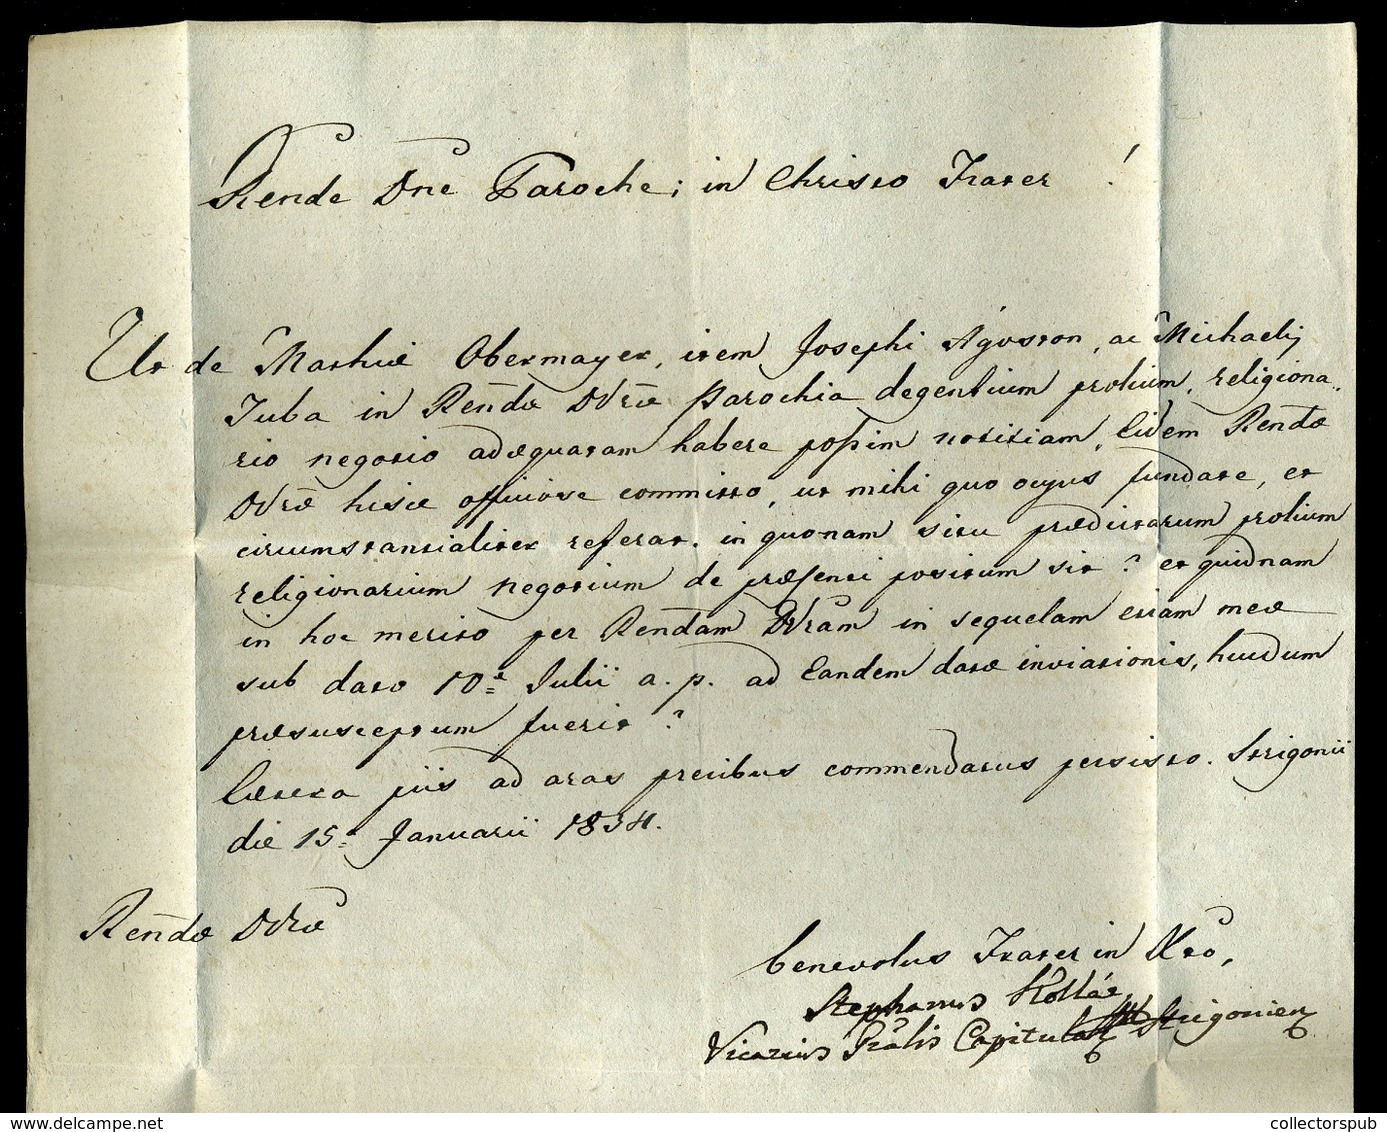 Rende Dne Paroche; in Christo Frater!
Ut de Mathiæ Obermayer, item Josephi Ágoston, ac Michaelis
Juba in Rendæ Dvræ Parochia degentium prolium, religiona-
rio negotio adæquatam habere possim notitiam, Eidem Rendæ
Dvræ hisce officiose committo, ut mihi quo ocyus fundate, et
circumstantialiter referat. in quonam situ prædictarum prolium
religionarium negotium de præsenti positum sit? et quidnam
in hoc merito per Rendam Dvram in sequelam etiam meæ
sub dato 10æ Julii a. p. ad Eandem datæ inviationis, hucdum
præsusceptum fuerit?
Cætera piis ad aras precibus commendatus persisto. Strigonii
die 15a Januarii 1834.
Rendæ Dvræ
benevolus Frater in Xto,
Stephanus Kollár
Vicarius Gralis Capitularis Strigonien
collectorspub.com